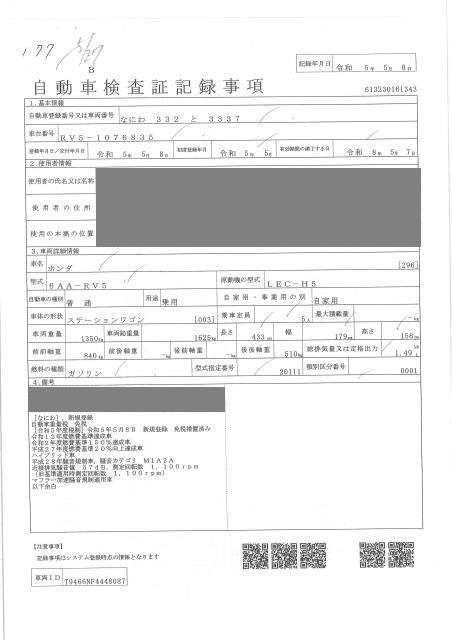 177 5/27
B
記録年月日 令和 5年 5月 8日
自動車検査証記録事項
613230161343
1.基本情報
自動車登録番号又は車両番号 なにわ 332 と 3337
車台番号 RV5-1076835
登録年月日/交付年月日 令和 5年 5月 8日 初度登録年月 令和 5年 5月 有効期間の満了する日 令和 8年 5月 7日
2.使用者情報
使用者の氏名又は名称
使用者の住所
使用の本拠の位置
3.車両詳細情報
車名 ホンダ [296]
型式 6AA-RV5 原動機の型式 LEC-H5
自動車の種別 普通 用途 乗用 自家用・事業用の別 自家用
車体の形状 ステーションワゴン [003] 乗車定員 5人 最大積載量 -kg
車両重量 1350kg 車両総重量 1625kg 長さ 433cm 幅 179cm 高さ 158cm
前前軸重 840kg 前後軸重 -kg 後前軸重 -kg 後後軸重 510kg 総排気量又は定格出力 1.49
燃料の種類 ガソリン 型式指定番号 20111 類別区分番号 0001
4.備考
[なにわ],新規登録
自動車重量税 免税
[令和5年度税制]令和5年5月8日 新規登録 免税措置済み
令和12年度燃費基準達成車
令和2年度燃費基準150%達成車
平成27年度燃費基準20%向上達成車
ハイブリッド車
平成28年騒音規制車,騒音カテゴリ M1A2A
近接排気騒音値 57dB,測定回転数 1,100rpm
(旧基準適用時測定回転数 1,100rpm)
マフラー加速騒音規制適用車
以下余白
【注意事項】
記録事項はシステム登録時点の情報となります
車両ID T9466NF4448087